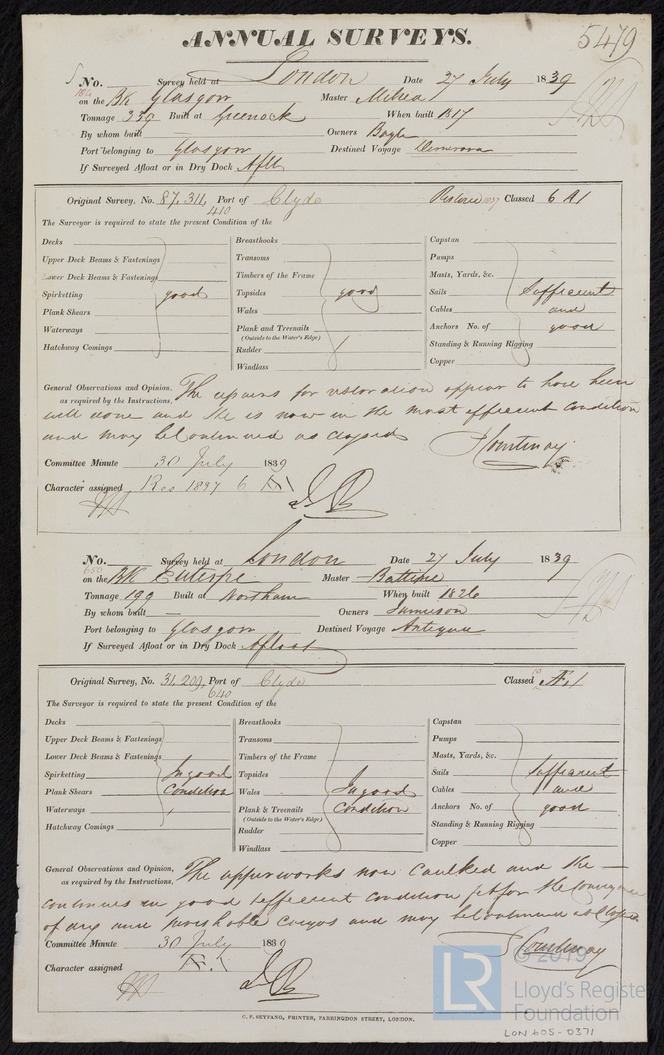 ANNUAL SURVEYS.
5479
No. Survey held at London Date 27 July 1839
on the Bk Glasgow Master
Tonnage 339 Built at Greenock When built 1817
By whom built — Owners Bogle
Port belonging to Glasgow Destined Voyage Demerara
If Surveyed Afloat or in Dry Dock Aflt
Original Survey, No. 87,311, Port of Clyde Restored 1837 Classed 6 A1
410
The Surveyor is required to state the present Condition of the
Decks Breasthooks Capstan
Upper Deck Beams & Fastenings Transoms Pumps
Lower Deck Beams & Fastenings Timbers of the Frame Masts, Yards, &c.
Spirketting good Topsides good Sails Sufficient
Plank Shears Wales Cables and
Waterways Plank and Treenails Anchors No. of good
(Outside to the Water's Edge)
Hatchway Comings Rudder Standing & Running Rigging
Windlass Copper
General Observations and Opinion, The repairs for restoration appear to have been
as required by the Instructions,
well done and she is now in the most efficient condition
and may be continued as classed
Courtenay
Committee Minute 30 July 1839
Character assigned Res 1837 6 A1
No. Survey held at London Date 27 July 1839
650
on the Bk Euterpe Master
Tonnage 199 Built at Northam When built 1826
By whom built — Owners Jamieson
Port belonging to Glasgow Destined Voyage Antigua
If Surveyed Afloat or in Dry Dock Afloat
Original Survey, No. 31,209, Port of Clyde Classed Æ1
640
The Surveyor is required to state the present Condition of the
Decks Breasthooks Capstan
Upper Deck Beams & Fastenings Transoms Pumps
Lower Deck Beams & Fastenings Timbers of the Frame Masts, Yards, &c.
Spirketting In good Topsides Sails Sufficient
Plank Shears Condition Wales In good Cables and
Waterways Plank & Treenails Condition Anchors No. of good
(Outside to the Water's Edge)
Hatchway Comings Rudder Standing & Running Rigging
Windlass Copper
General Observations and Opinion, The upperworks now caulked and she
as required by the Instructions,
continues in good & efficient condition fit for the Conveyance
of dry and perishable cargos and may be continued as Classed
Courtenay
Committee Minute 30 July 1839
Character assigned Æ.1
C. F. SEYFANG, PRINTER, FARRINGDON STREET, LONDON.
LR
© 2019
Lloyd's Register
Foundation
LON 605-0371